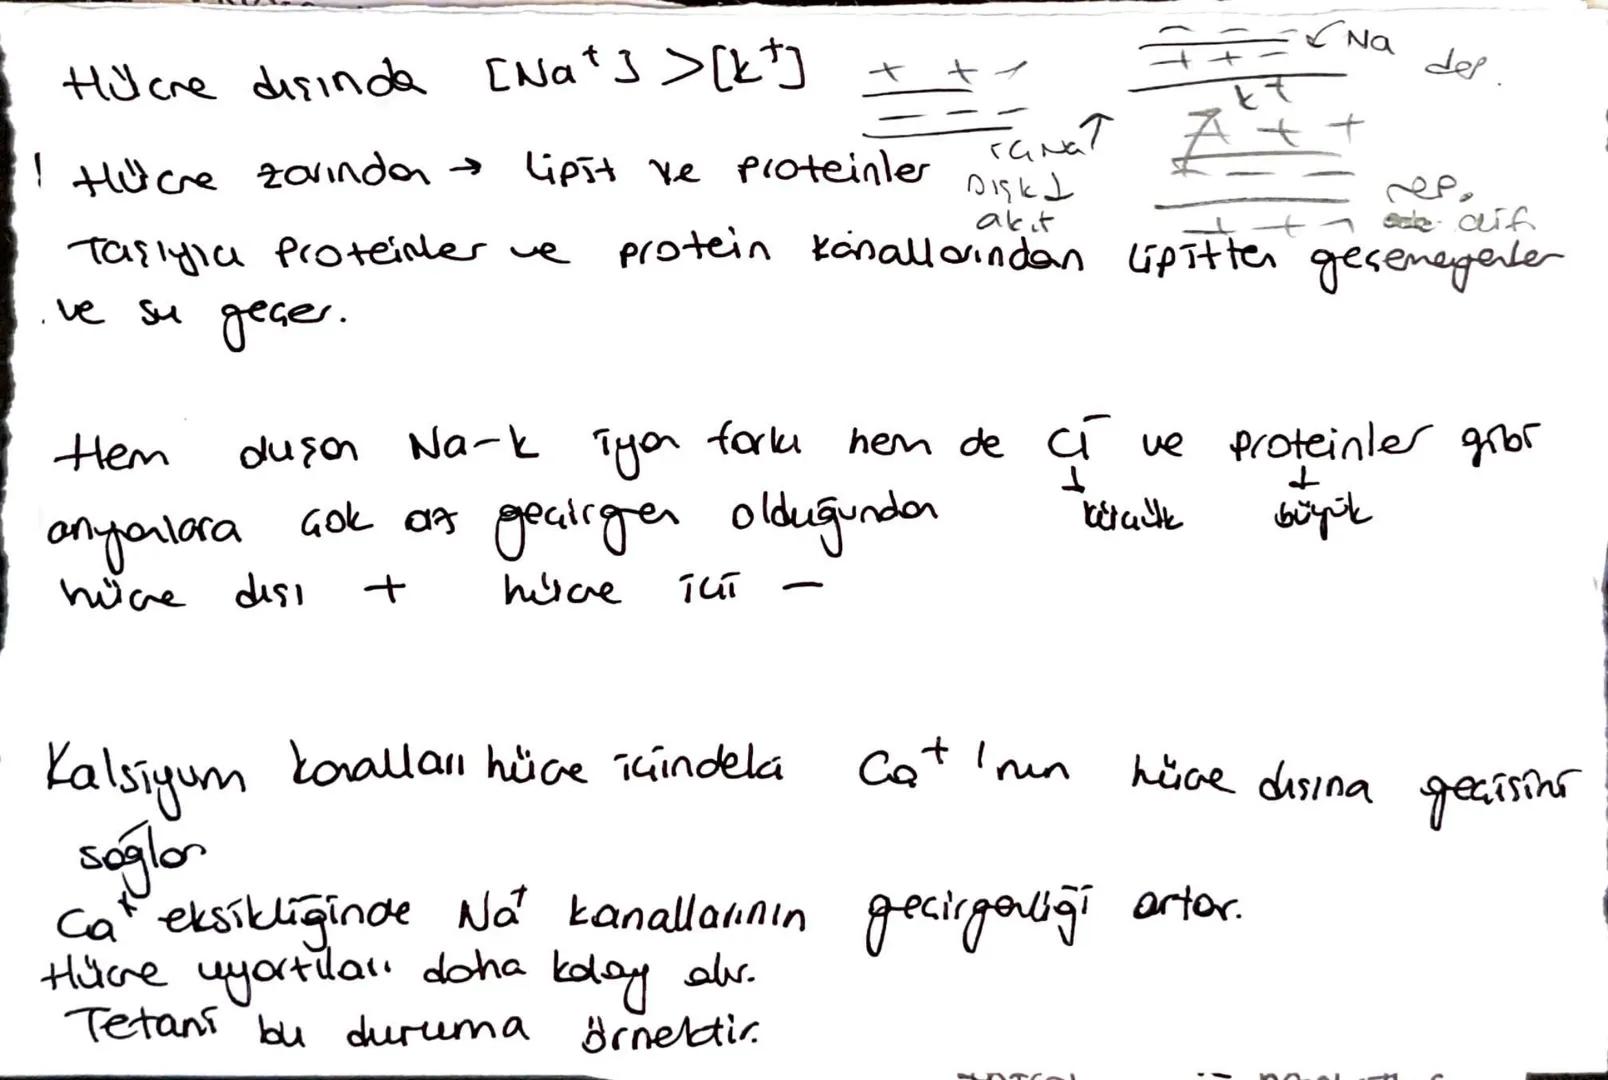 Hücre dışında [Na⁺] > [k⁺]
+ + -
- - -
- - - ↙ Na
+ + - dep.
k+
+ +
- - - rep.
+ + - dif.
içi Na ↑
Dış k ↓
akıt
! Hücre zarından → lipit ve proteinler
Taşıyıcı proteinler ve protein kanallarından lipitten geçemeyenler
ve su geçer.
Hem dışarı Na-k iyon farkı hem de Cl⁻ ve proteinler gibi
↓ küçük ↓ büyük
anyonlara çok az geçirgen olduğundan
hücre dışı + hücre içi -
Kalsiyum kanalları hücre içindeki Ca⁺'nun hücre dışına geçişini
sağlar
Ca⁺ eksikliğinde Na⁺ kanallarının geçirgenliği artar.
Hücre uyartıları daha kolay alır.
Tetani bu duruma örnektir.